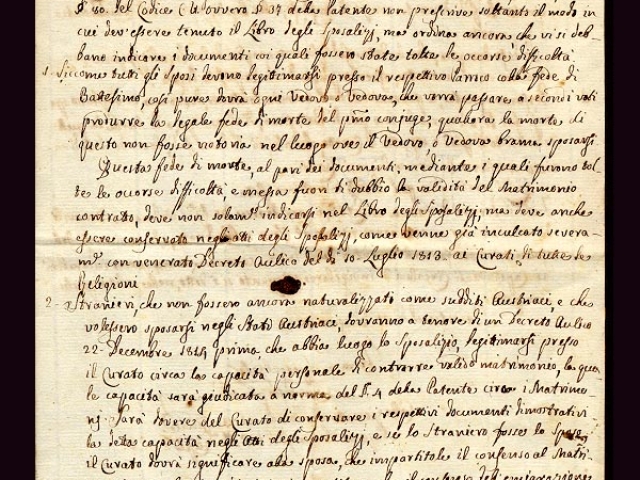 §. 80. del Codice C. le ovvero §. 37 della Patente non prescrive soltanto il modo in
cui dev'essere tenuto il Libro degli Sposalizj, ma ordina ancora che vi si deb-
bano indicare i documenti coi quali fossero state tolte le occorse difficoltà
1. Siccome tutti gli Sposi devono legittimarsi presso il respettivo Parroco colla fede di
Battesimo, così pure dovrà ogni Vedovo o Vedova, che vorrà passare a secondi voti
produrre la legale fede di morte del primo conjuge, qualora la morte di
questo non fosse notoria nel luogo ove il Vedovo o Vedova brama sposarsi
Questa fede di morte, al pari dei documenti, mediante i quali furono tol-
te le occorse difficoltà e messa fuori di dubbio la validità del Matrimonio
contratto, deve non solam.e indicarsi nel Libro degli Sposalizj, ma deve anche
essere conservato negli atti degli Sposalizj, come venne già inculcato severa-
m.e con venerato Decreto Aulico del dì 10. Luglio 1813. ai Curati di tutte le
Religioni
2. Stranieri, che non fossero ancora naturalizzati come sudditi Austriaci, e che
volessero sposarsi negli Stati Austriaci, dovranno a tenore di un Decreto Aulico
22. Decembre 1814 prima, che abbia luogo lo Sposalizio, legittimarsi presso
il Curato circa la capacità personale di contrarre valido matrimonio, la qua
le capacità sarà giudicata a norma del §. 4 della Patente circa i Matrimo
nj. Sarà dovere del Curato di conservare i respettivi documenti dimostrativi
la detta capacità negli Atti degli Sposalizj, e se lo Straniero fosse lo Sposo,
il Curato dovrà significare alla sposa, che impartitole il consenso al Matri-
il consenso dell'emigrazione